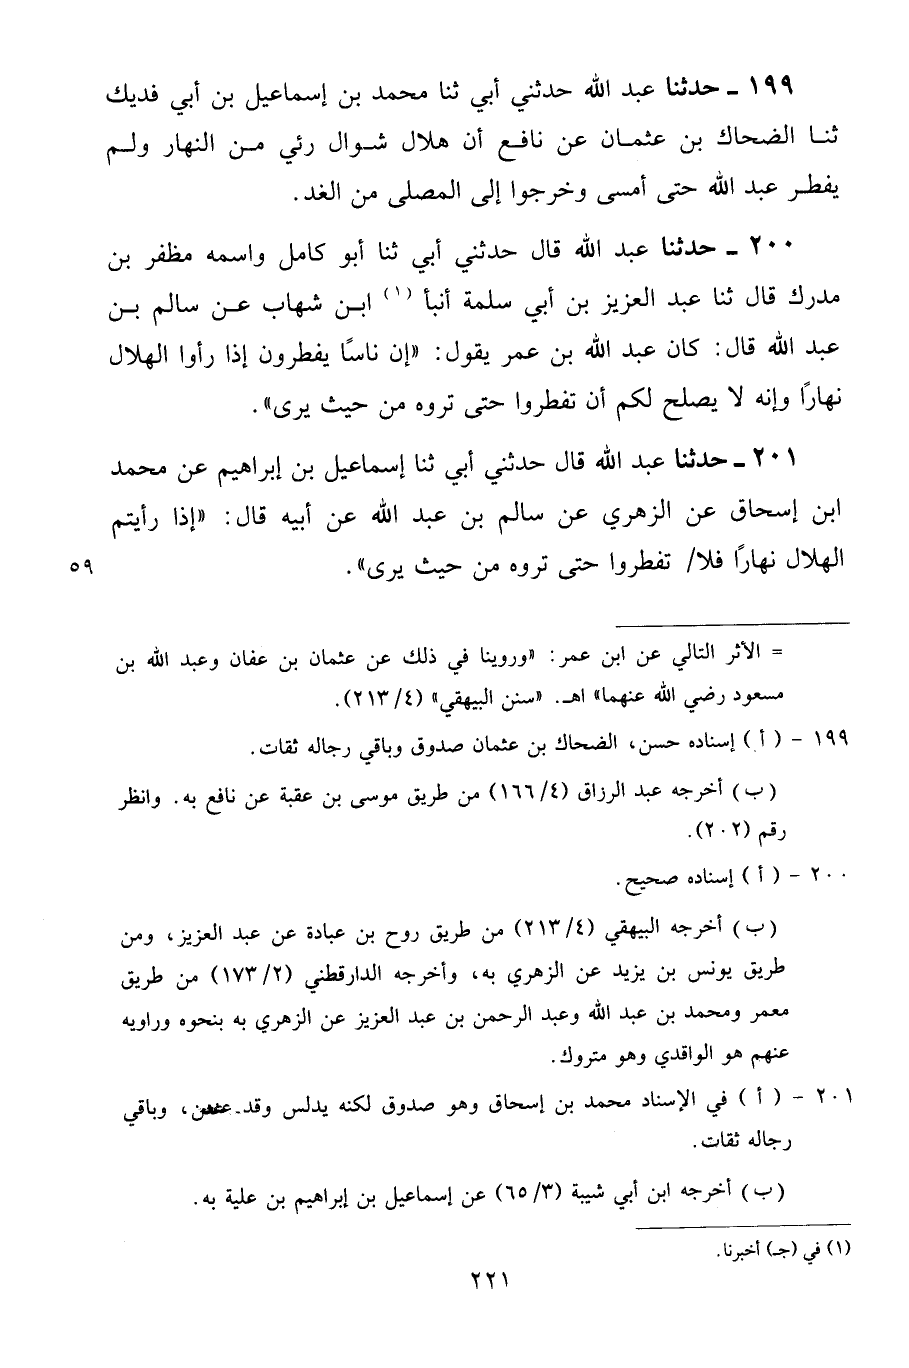 ١٩٩ ـ حدثنا عبد الله حدثني أبي ثنا محمد بن إسماعيل بن أبي فديك
ثنا الضحاك بن عثمان عن نافع أن هلال شوال رئي من النهار ولم
يفطر عبد الله حتى أمسى وخرجوا إلى المصلى من الغد.
٢٠٠ ـ حدثنا عبد الله قال حدثني أبي ثنا أبو كامل واسمه مظفر بن
مدرك قال ثنا عبد العزيز بن أبي سلمة أنبأ (١) ابن شهاب عن سالم بن
عبد الله قال: كان عبد الله بن عمر يقول: «إن ناسًا يفطرون إذا رأوا الهلال
نهارًا وإنه لا يصلح لكم أن تفطروا حتى تروه من حيث يرى».
٢٠١ ـ حدثنا عبد الله قال حدثني أبي ثنا إسماعيل بن إبراهيم عن محمد
ابن إسحاق عن الزهري عن سالم بن عبد الله عن أبيه قال: «إذا رأيتم
الهلال نهارًا فلا/ تفطروا حتى تروه من حيث يرى». ٥٩
= الأثر التالي عن ابن عمر: «وروينا في ذلك عن عثمان بن عفان وعبد الله بن
مسعود رضي الله عنهما» اهـ. «سنن البيهقي» (٤/ ٢١٣).
١٩٩ - (أ) إسناده حسن، الضحاك بن عثمان صدوق وباقي رجاله ثقات.
(ب) أخرجه عبد الرزاق (٤/ ١٦٦) من طريق موسى بن عقبة عن نافع به. وانظر
رقم (٢٠٢).
٢٠٠ - (أ) إسناده صحيح.
(ب) أخرجه البيهقي (٤/ ٢١٣) من طريق روح بن عبادة عن عبد العزيز، ومن
طريق يونس بن يزيد عن الزهري به، وأخرجه الدارقطني (٢/ ١٧٣) من طريق
معمر ومحمد بن عبد الله وعبد الرحمن بن عبد العزيز عن الزهري به بنحوه وراويه
عنهم هو الواقدي وهو متروك.
٢٠١ - (أ) في الإسناد محمد بن إسحاق وهو صدوق لكنه يدلس وقد عنعن، وباقي
رجاله ثقات.
(ب) أخرجه ابن أبي شيبة (٣/ ٦٥) عن إسماعيل بن إبراهيم بن علية به.
(١) في (جـ) أخبرنا.
٢٢١